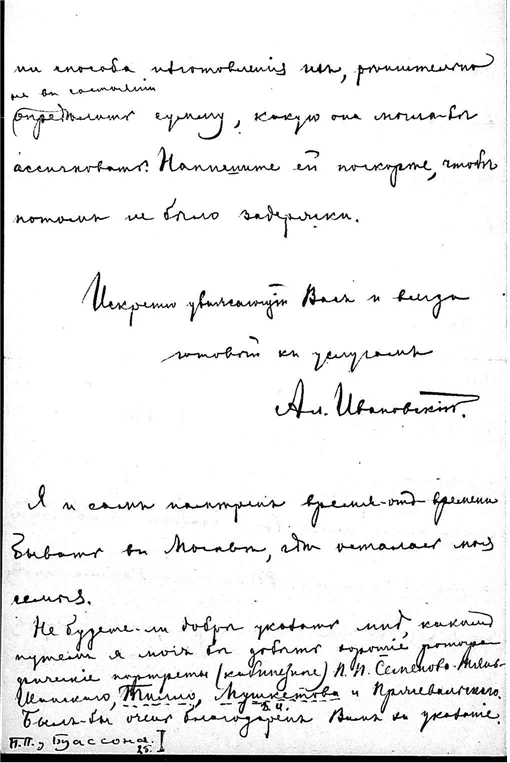 ни способа изготовленія ихъ, рѣшительно
не въ состояніи
опредѣлить сумму, какую она могла-бы
ассигновать. Напишите ей поскорѣе, чтобы
потомъ не было задержки.
Искренно уважающій Васъ и всегда
готовый къ услугамъ
Ал. Ивановскій.
Я и самъ намѣренъ время-отъ-времени
бывать въ Москвѣ, гдѣ осталась моя
семья.
Не будете-ли добры указать мнѣ, какимъ
путемъ я могъ бы добыть хорошіе фотогра-
фическіе портреты (кабинетные) П. П. Семенова-Тянь-
Шанскаго, Тилло, Мушкетова и Пржевальскаго.
Былъ-бы очень благодаренъ Вамъ за указаніе.
П.П., Буассона.
25.